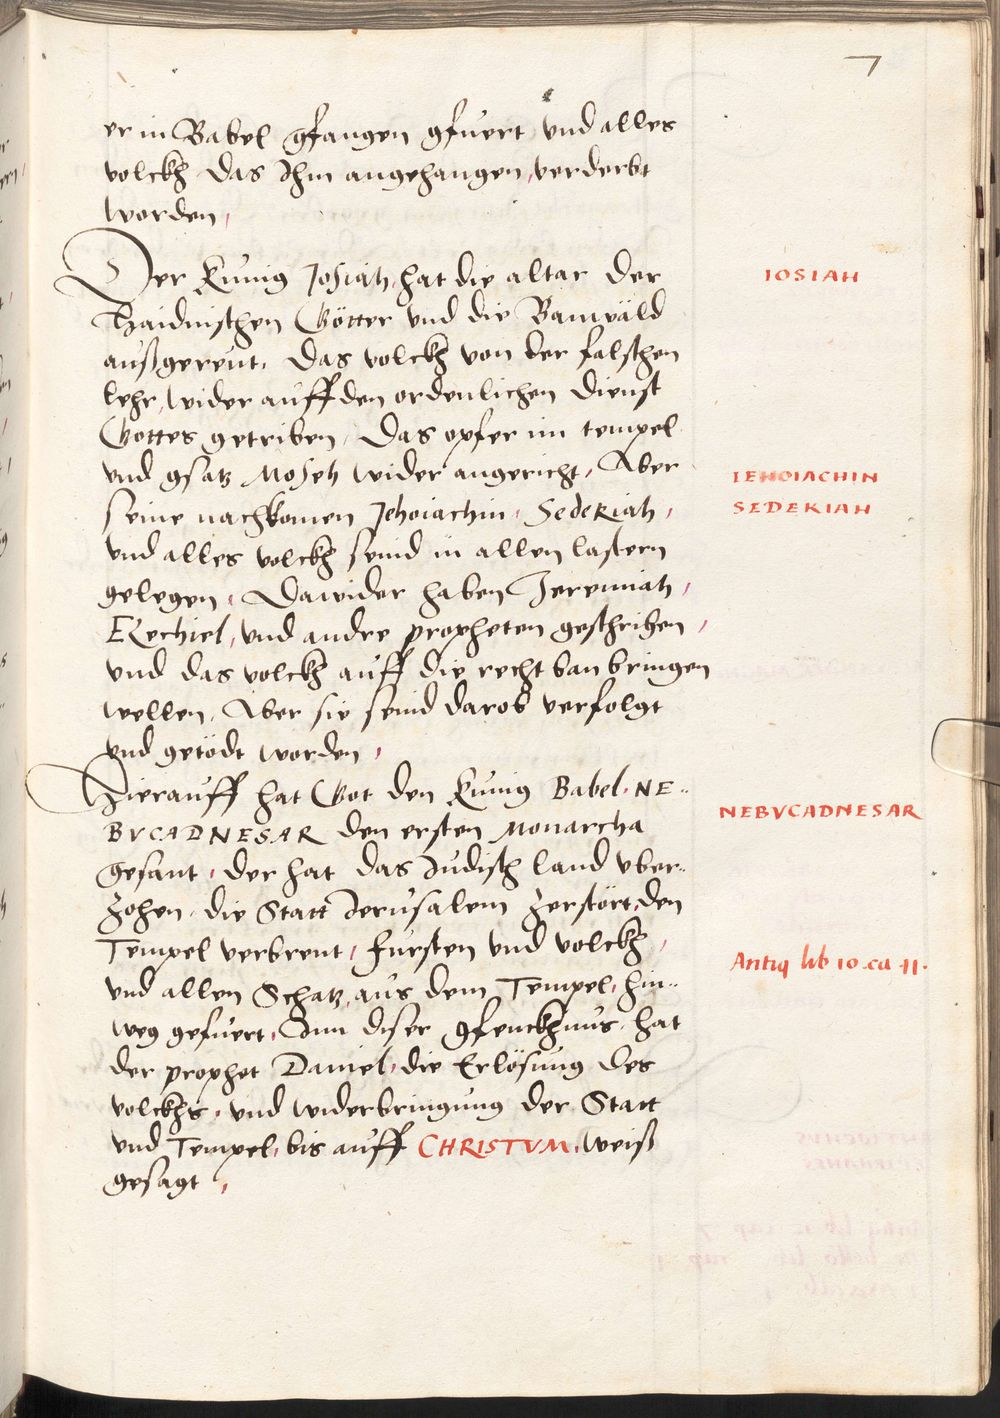 7
er in Babel gfangen gfuert, und alles
volckh, das Ihm angehangen, verderbt
worden,
Der Künig Josiah, hat die altar der
Haidnischen Götter und die Banwäld
außgereut, Das volckh von der falschen
lehr, wider auff den ordenlichen dienst
Gottes getriben, Das opfer im tempel
und gsatz Moseh wider angericht, Aber
seine nachkomen Jehoiachin, Sedekiah,
und alles volckh seind in allen lastern
gelegen, Dawider haben Jeremiah,
Ezechiel, und andre propheten geschriben,
und das volckh auff die recht ban bringen
wellen, Aber sie seind darob verfolgt
und getödt worden,
Hierauff hat Got den Künig Babel, NE-
BVCADNESAR den ersten Monarcha
gesant, der hat das Judisch land uber-
zohen, die Statt Jerusalem zerstört, den
Tempel verbrent, fursten und volckh,
und allen Schatz, aus dem Tempel, hin-
weg gefuert, Inn diser gfenckhnus, hat
der prophet Daniel, die Erlösung des
volckhs, und widerbringung der Statt
und Tempel, bis auff CHRISTVM, weiß
gesagt,
IOSIAH
IEHOIACHIN
SEDEKIAH
NEBVCADNESAR
Antiq lib 10. ca 11.